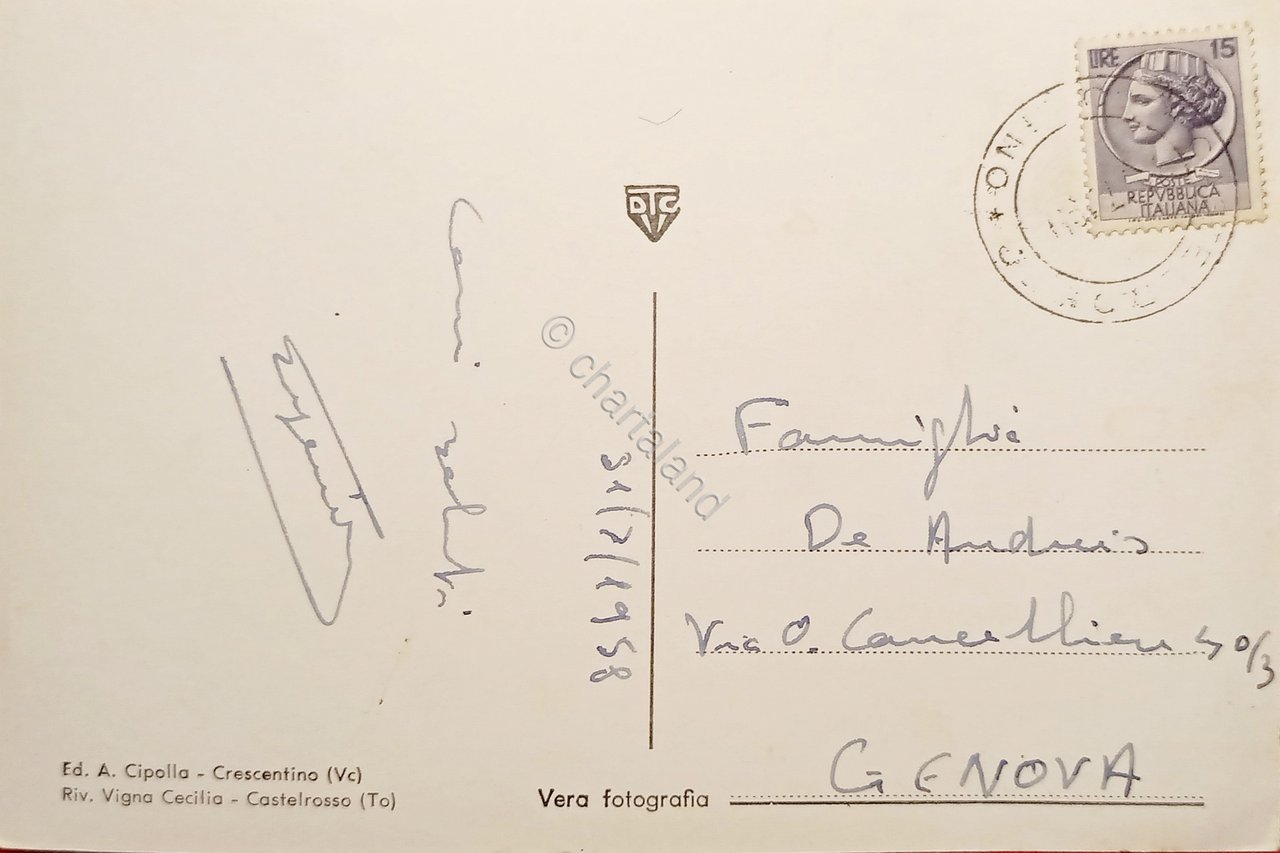 LIRE 15
POSTE
REPVBBLICA
ITALIANA
DTC
Cari saluti
31/7/1958
© chartaland
Famiglia
De Andreis
Via O. Cancellieri 40/3
GENOVA
Ed. A. Cipolla - Crescentino (Vc)
Riv. Vigna Cecilia - Castelrosso (To)
Vera fotografia